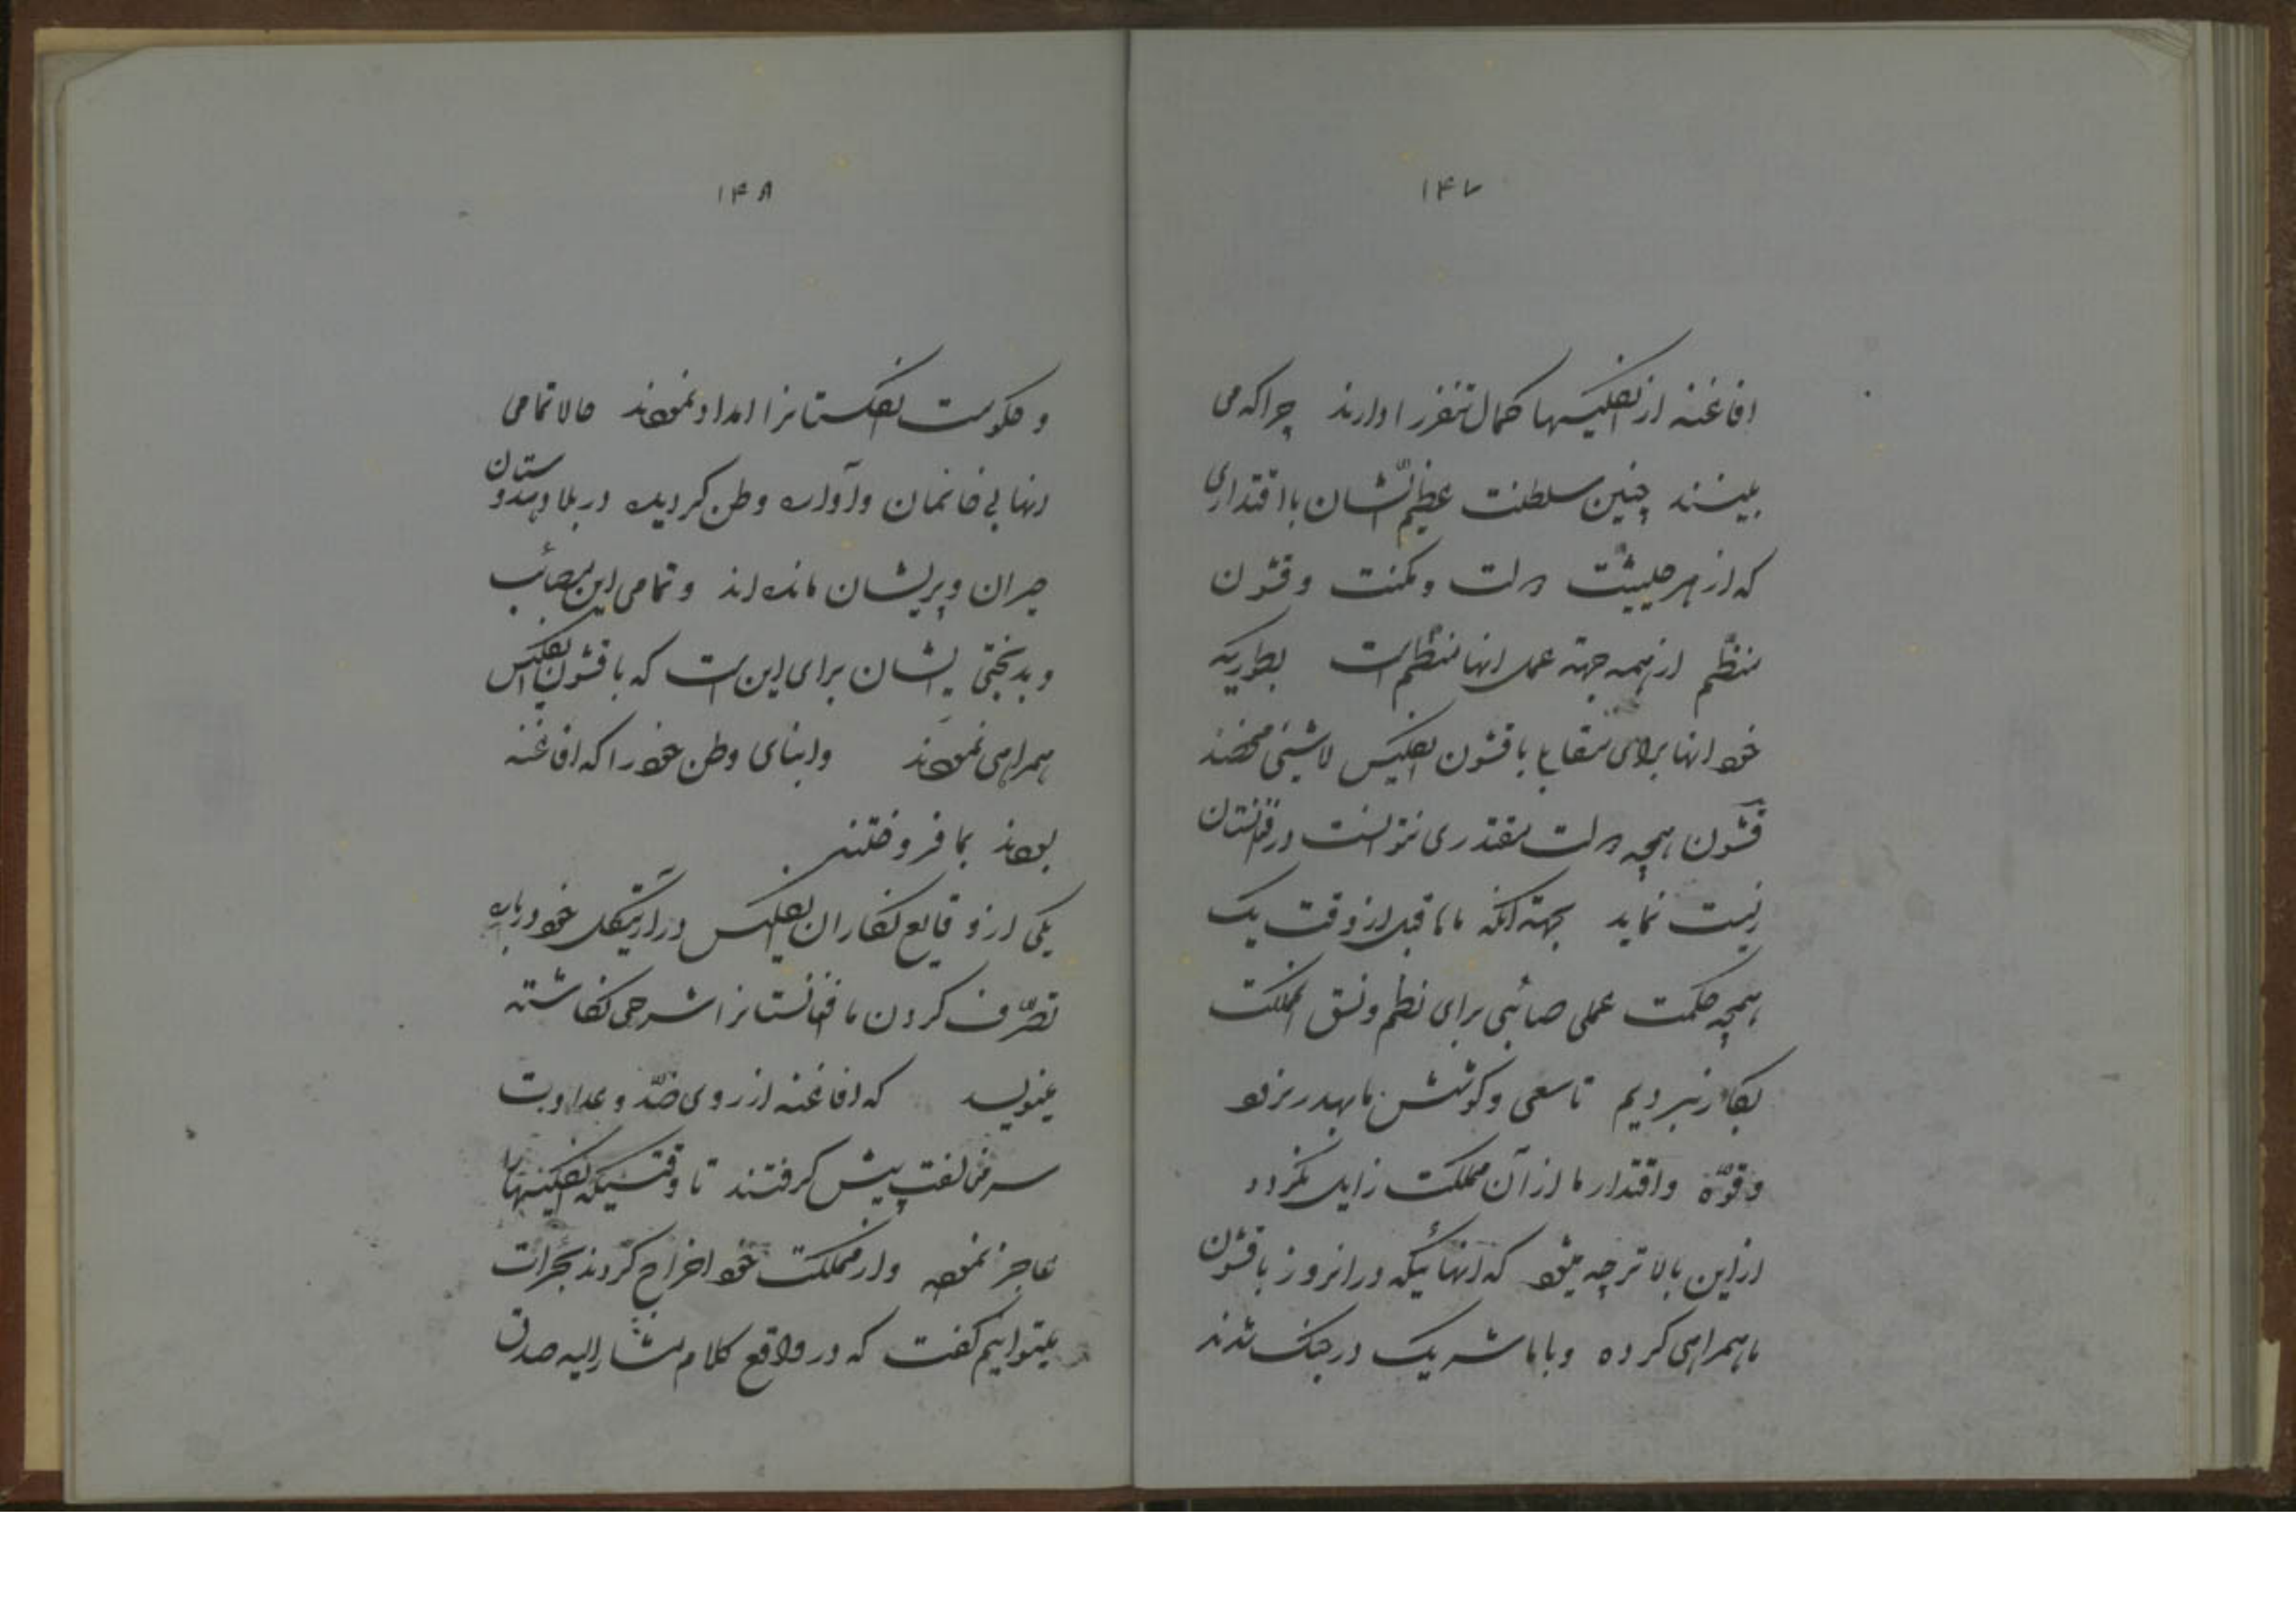 ۱۴۷
افاغنه از انگلیسها کمال تنفر را دارند چرا که می
بینند چنین سلطنت عظیم الشّان با اقتداری
که از هر حیثیّت دولت و مکنت و قشون
منظّم از همه جهته عمل انها منتظم است بطوریکه
خود انها برای مقابل با قشون انگلیس لاشیئی محضند
قشون همچه دولت مقتدری نتوانست در افغانستان
زیست نماید بجهته انکه ماها قبل از وقت یک
همچه حکمت عملی صائبی برای نظم و نسق انمملکت
بکار نبردیم تا سعی و کوشش ما بهدر نرود
و قوّة و اقتدار ما از آن مملکت زایل نگردد
از این بالاتر چه میشود که انهائیکه در انروز با قشون
ما همراهی کرده و با ما شریک در جنک شدند
۱۴۸
و حکومت انگلستانرا امداد نمودند حالا تمامی
انها بی خانمان و آواره وطن گردیده در بلاد هندوستان
حیران و پریشان مانده اند و تمامی این مصائب
و بدبختی ایشان برای این است که با قشون انگلیس
همراهی نمودند و ابنای وطن خود را که افاغنه
بودند بما فروختند
یکی از وقایع نگاران انگلیس در آرتیکل خود درباره
تصرّف کردن ما افغانستانرا شرحی نگاشته
مینویسد که افاغنه از روی ضدّ و عداوت
سر مخالفت پیش گرفتند تا وقتیکه انگلیسها را
عاجز نموده و از مملکت خود اخراج کردند بجرات
میتوانیم گفت که در واقع کلام مشار الیه صدق